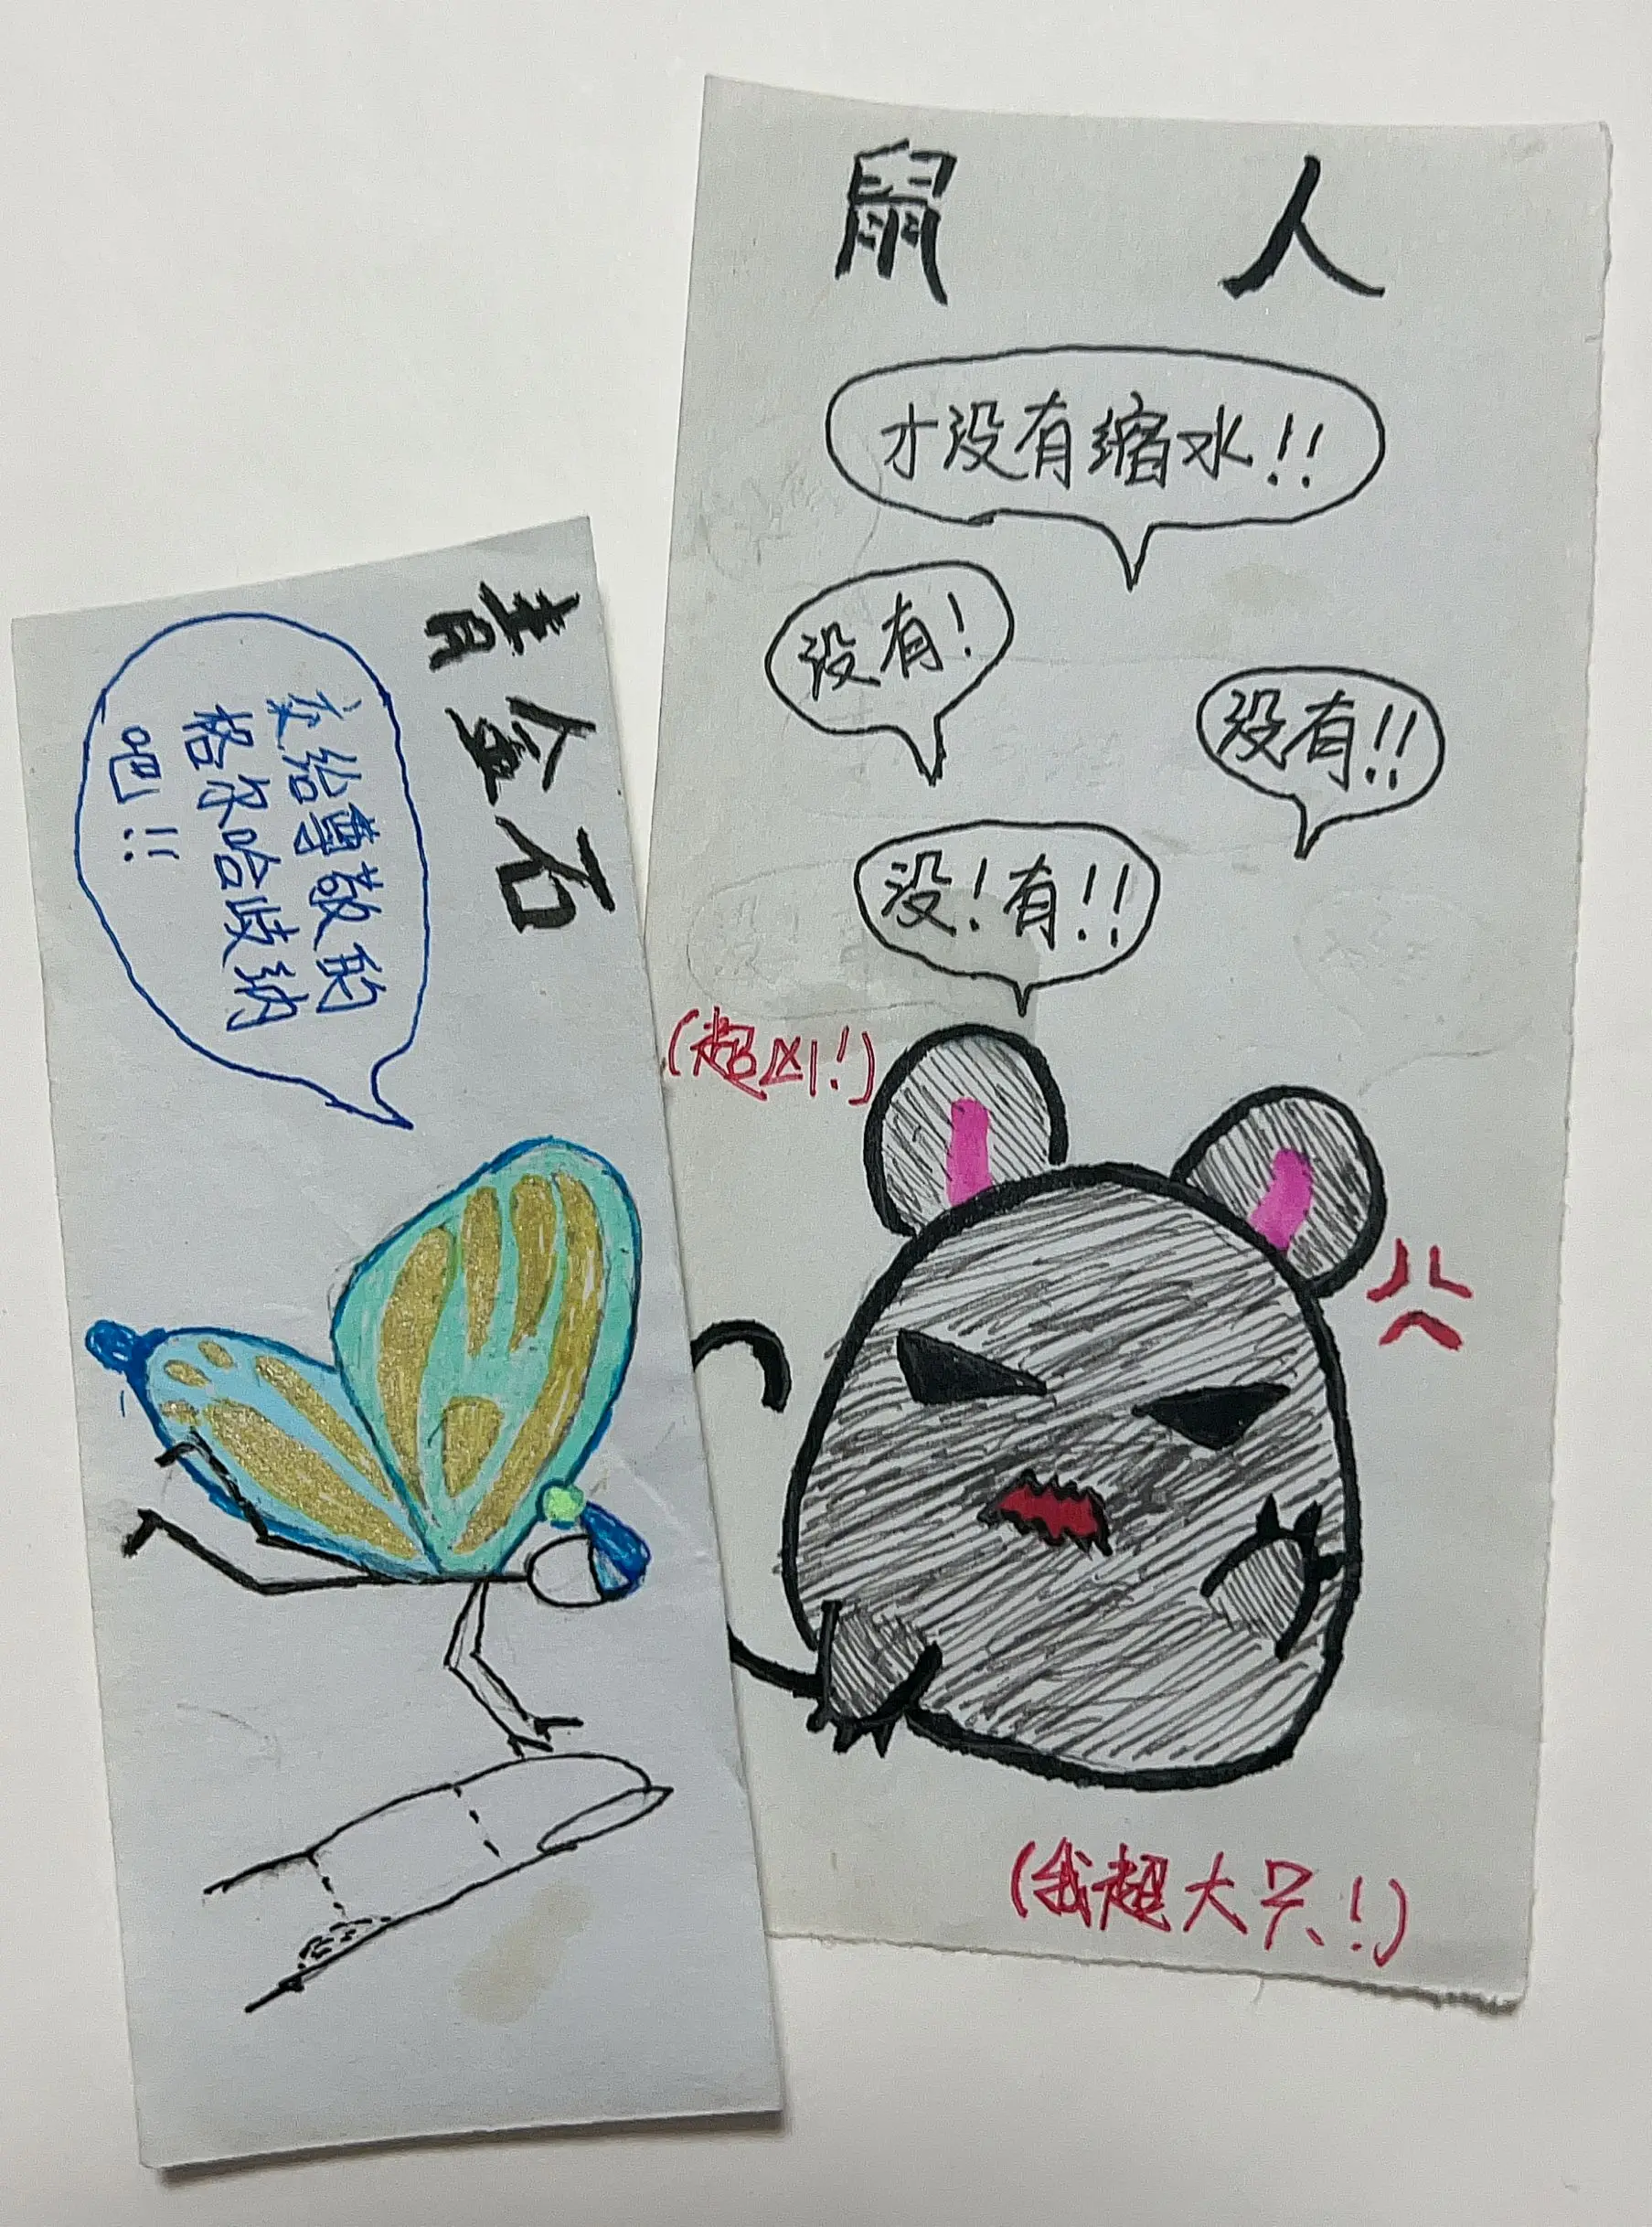 青金石
交给尊敬的
格尔哈歧纳
吧!!
鼠 人
才没有缩水!!
没有!
没有!!
没!有!!
(超凶!)
(我超大只!)